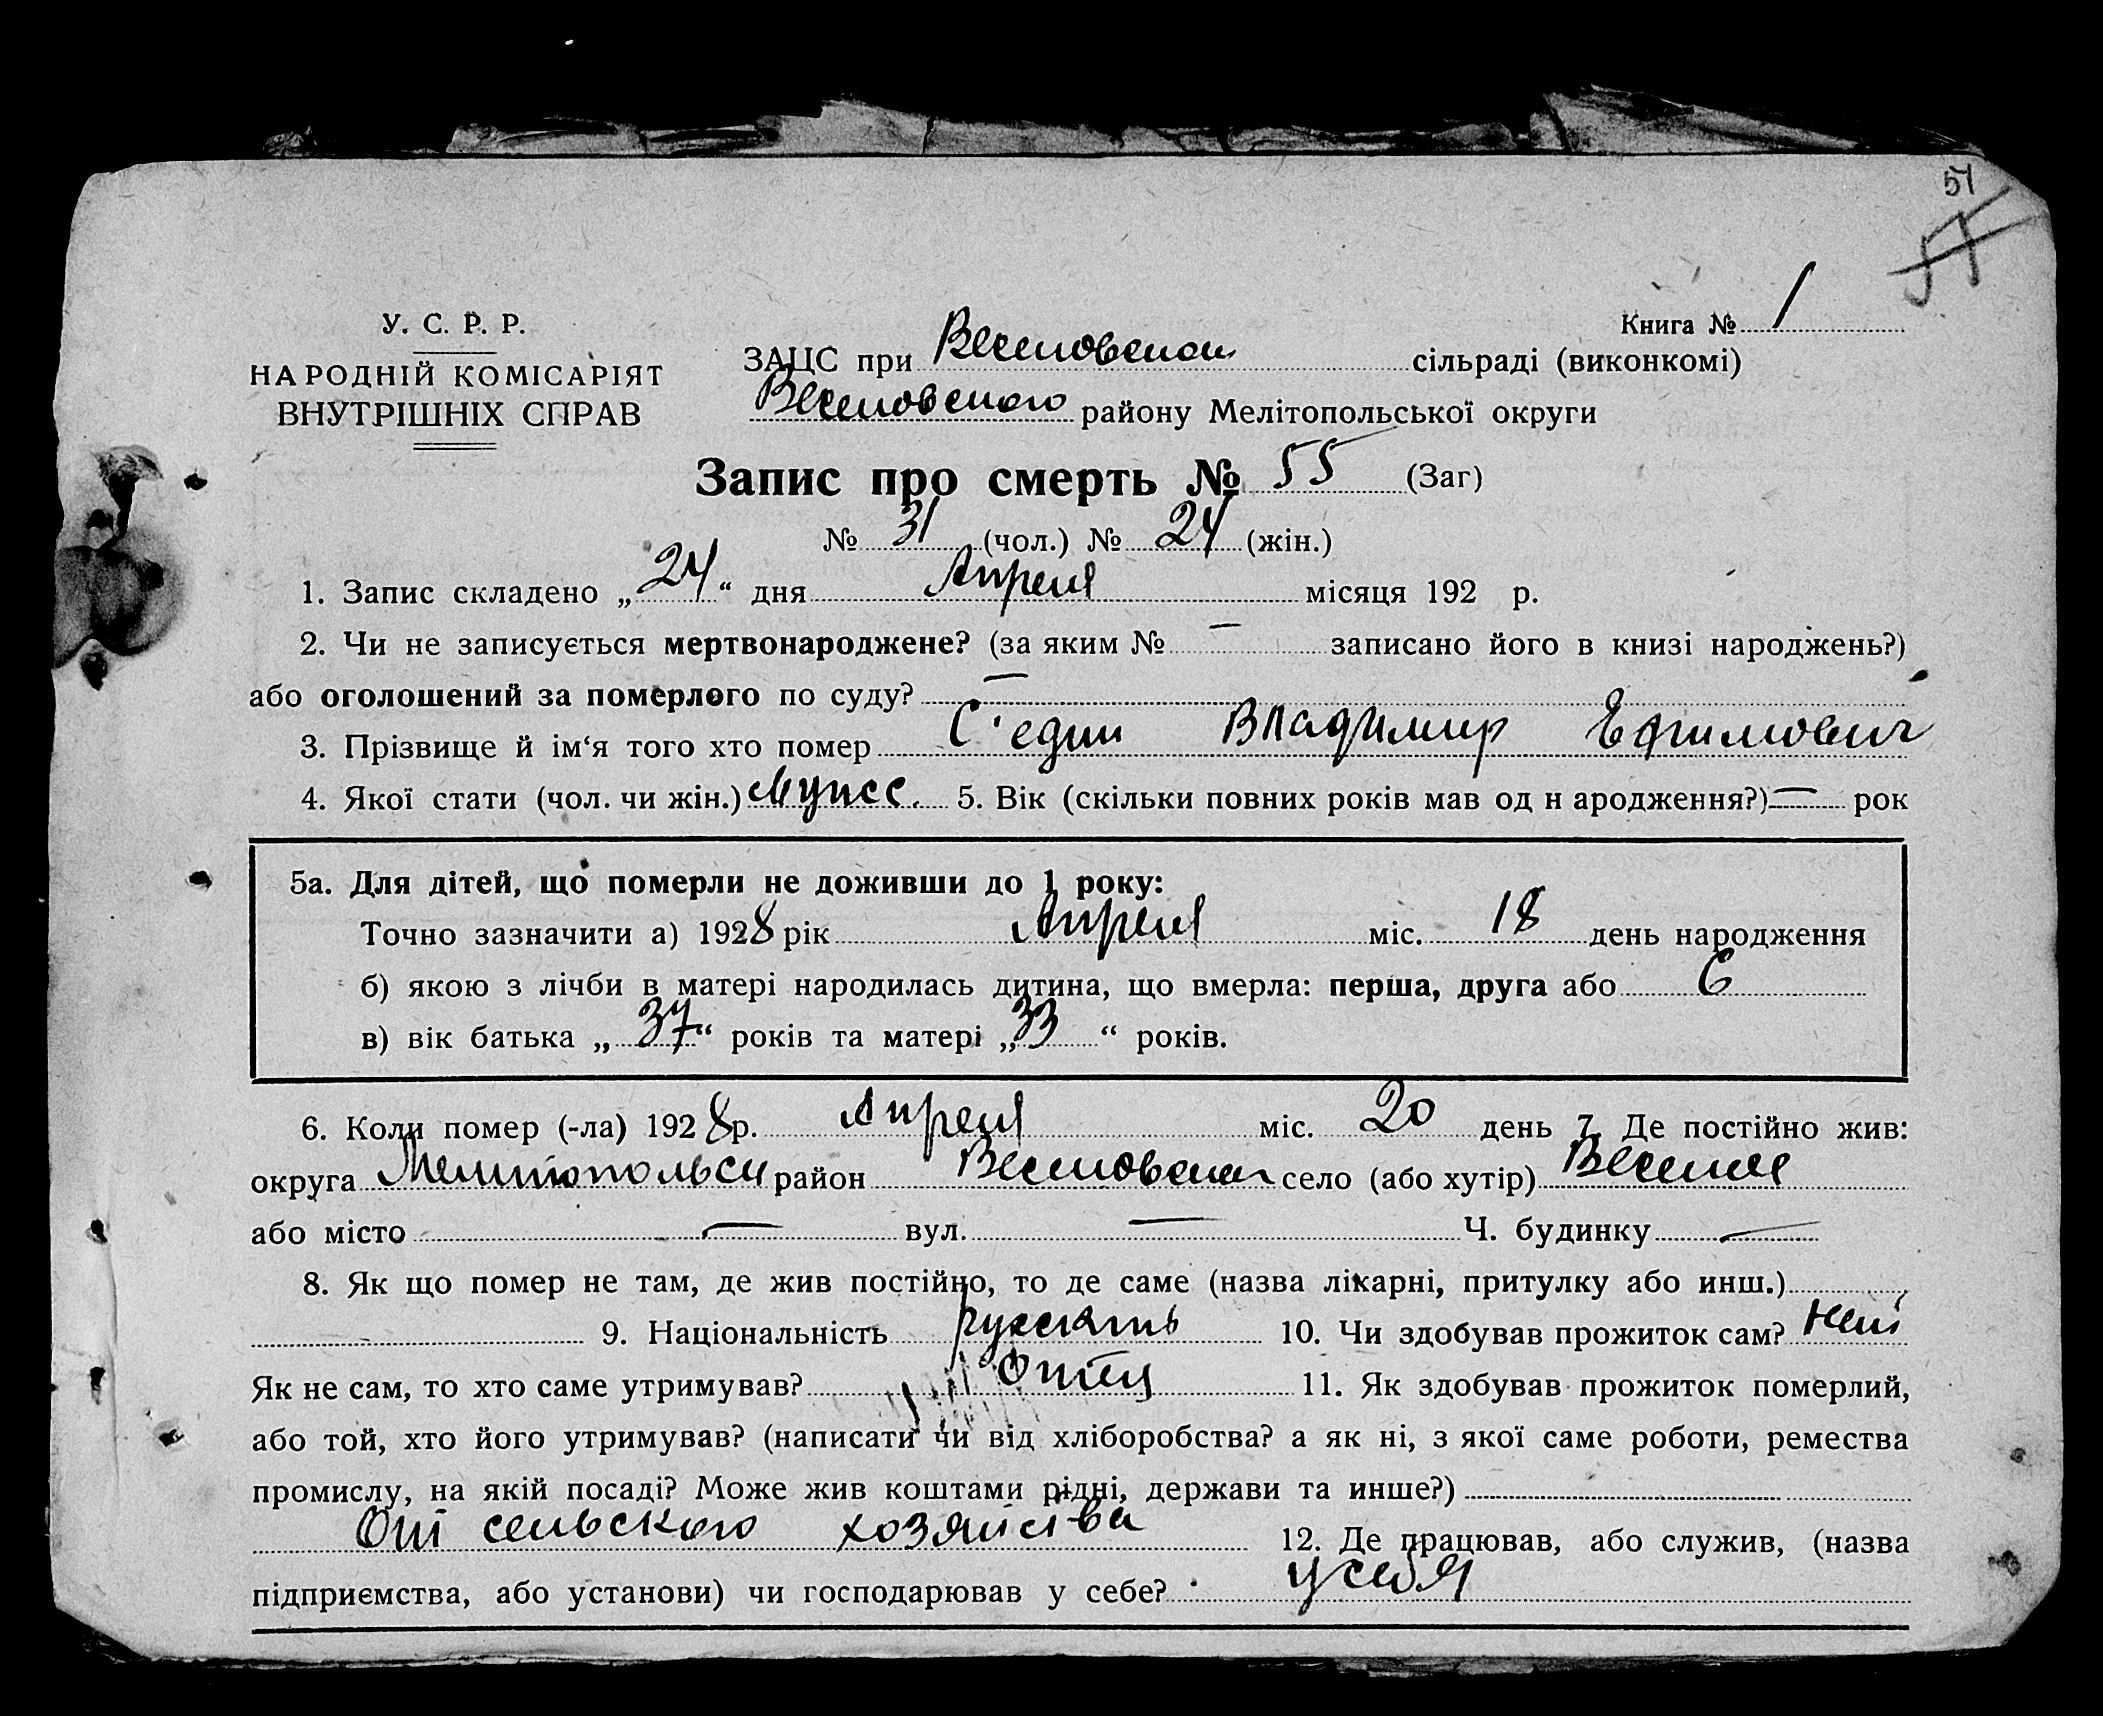 51
57
У. С. Р. Р.
Книга № 1
НАРОДНІЙ КОМІСАРІЯТ
ВНУТРІШНІХ СПРАВ
ЗАЦС при Веселовском сільраді (виконкомі)
Веселовского району Мелітопольської округи
Запис про смерть № 55 (Заг)
№ 31 (чол.) № 24 (жін.)
1. Запис складено „24“ дня Апреля місяця 192 р.
2. Чи не записується мертвонароджене? (за яким № — записано його в книзі народжень?)
або оголошений за померлого по суду? —
3. Прізвище й ім‘я того хто помер С'един Владимир Ефимович
4. Якої стати (чол. чи жін.) Мужск. 5. Вік (скільки повних років мав од н ародження?) — рок
5а. Для дітей, що померли не доживши до 1 року:
Точно зазначити а) 1928 рік Апреля міс. 18 день народження
б) якою з лічби в матері народилась дитина, що вмерла: перша, друга або 6
в) вік батька „37“ років та матері „33“ років.
6. Коли помер (-ла) 1928 р. Апреля міс. 20 день 7. Де постійно жив:
округа Мелитопольск район Веселовском село (або хутір) Веселое
або місто — вул. — Ч. будинку —
8. Як що помер не там, де жив постійно, то де саме (назва лікарні, притулку або инш.)
9. Національність 10. Чи здобував прожиток сам? Нет
Як не сам, то хто саме утримував? Отец 11. Як здобував прожиток померлий,
або той, хто його утримував? (написати чи від хліборобства? а як ні, з якої саме роботи, ремества
промислу, на якій посаді? Може жив коштами рідні, держави та инше?)
От сельского хозяйства 12. Де працював, або служив, (назва
підприємства, або установи) чи господарював у себе? у себя